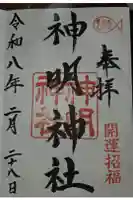 奉拝
開運招福
神明神社
令和八年二月二十八日